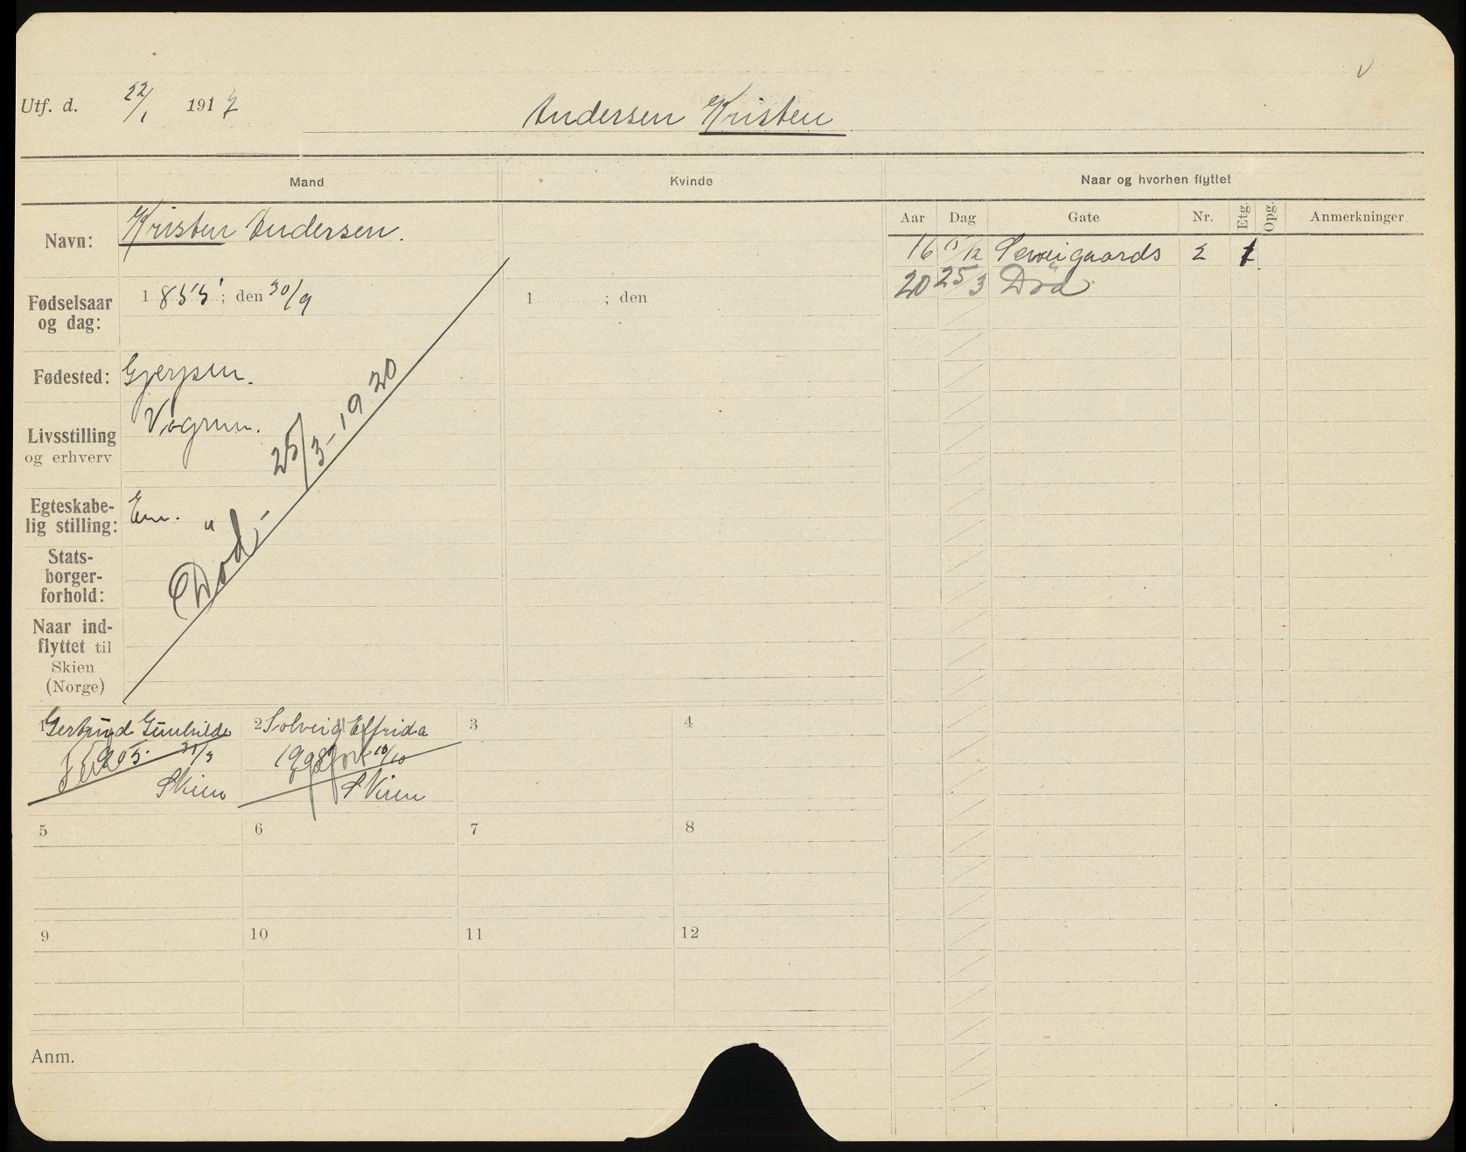 Utf. d. 22/1 1917
Andersen Kristen
Mand
Kvinde
Naar og hvorhen flyttet
Aar Dag Gate Nr. Etg. Opg. Anmerkninger
Navn: Kristen Andersen.
16 15/12 Sewei gaards 2 1
20 25/3 Død
Fødselsaar
og dag:
1 855; den 30/9
1 ; den
Fødested: Gjerpen.
Livsstilling
og erhverv
Vognm.
Egteskabe-
lig stilling:
Em. "
Død - 25/3 - 1920
Stats-
borger-
forhold:
Naar ind-
flyttet til
Skien
(Norge)
1 Gertrud Gunhilde
1905. 31/3
Skien
2 Solveig Elfrida
1908 10/10
Skien
3
4
5
6
7
8
9
10
11
12
Anm.